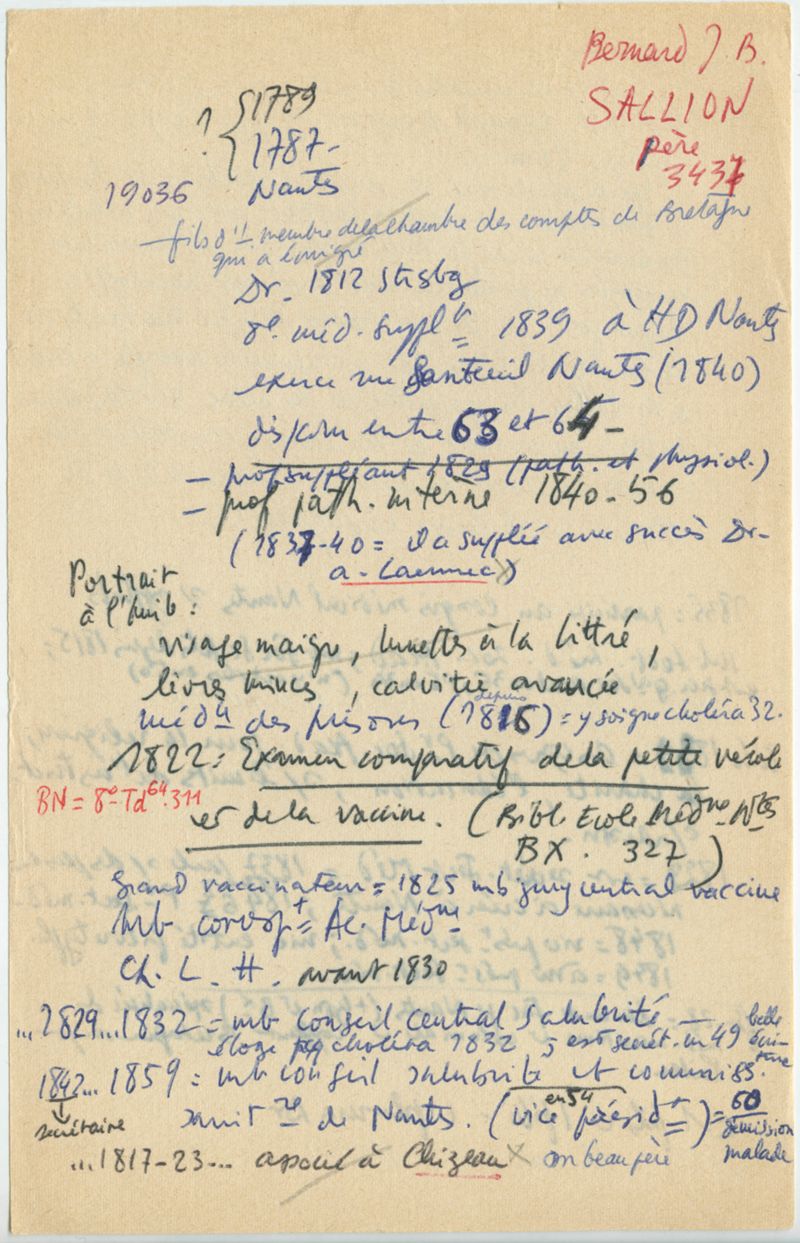 Bernard J. B.
SALLION
père
3437
? { 1789
1787-
Nantes
19036
- fils d'1 membre de la chambre des comptes de Bretagne
qui a émigré
Dr. 1812 Strsbg
8e méd. supplt = 1839 à HD Nantes
exerce rue Santeuil Nantes (1840)
disparu entre 63 et 64 -
- prof suppléant 1829 (path. et physiol.)
- prof path. interne 1840-56
(1837-40 = il a suppléé avec succès Dr-
a-Laennec X)
Portrait
à l'huile :
visage maigre, lunettes à la Littré,
lèvres minces, calvitie avancée
méd^n des prisons (depuis 1816) = y soigne choléra 32.
1822 : Examen comparatif de la petite vérole
BN = 8° Td 64. 311
et de la vaccine. (Bibl Ecole Médne Ntes
BX. 327)
Grand vaccinateur = 1825 mb jury central vaccine
Mb corresp^t = Ac. Médne -
Ch. L. H. avant 1830
...1829...1832 = mb conseil central salubrité -
éloge pr choléra 1832 ; est secrét. en 49 belle écriture
1842... 1859 = mb conseil salubrité et commiss.
secrétaire
sanit^re de Nantes. (vice présid^t = en 54) = 60
démission
malade
...1817-23... associé à Chizeau X son beau père